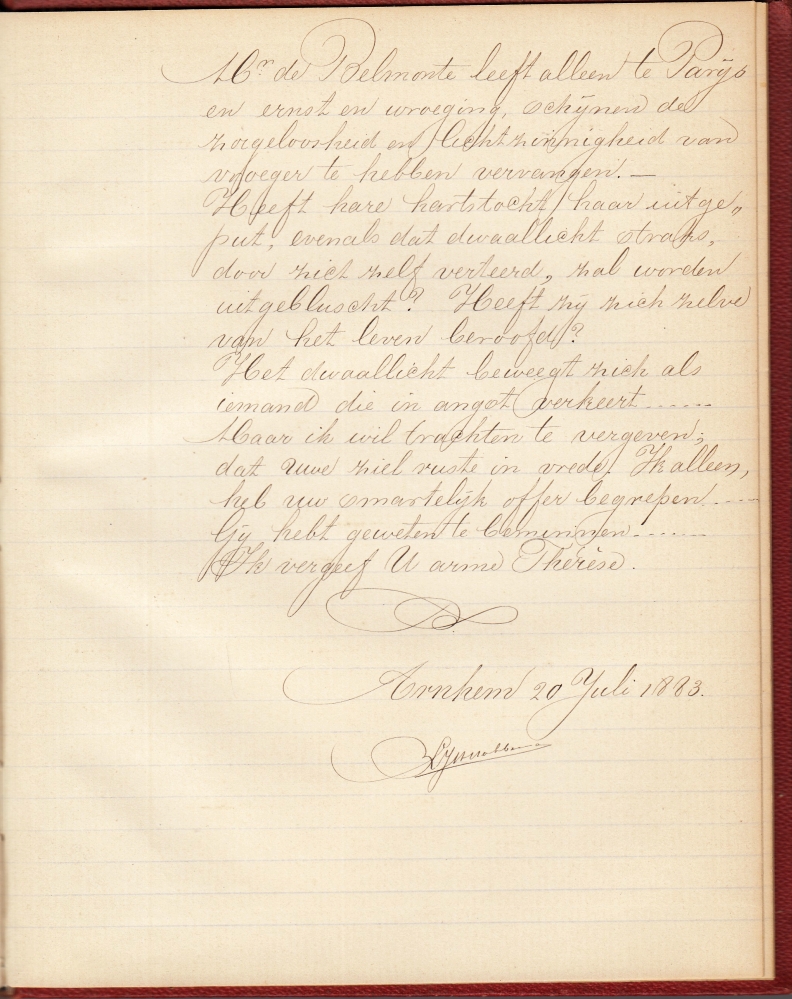 Mr de Belmonte leeft alleen te Parijs
en ernst en wroeging, schijnen de
zorgeloosheid en lichtzinnigheid van
vroeger te hebben vervangen. —
Heeft hare hartstocht haar uitge„
put, evenals dat dwaallicht straks,
door zich zelf verteerd, zal worden
uitgebluscht? Heeft zij zich zelve
van het leven beroofd?
Het dwaallicht beweegt zich als
iemand die in angst verkeert ......
Maar ik wil trachten te vergeven;
dat uwe ziel ruste in vrede. Ik alleen,
heb uw smartelijk offer begrepen ....
Gij hebt geweten te beminnen ......
Ik vergeef U arme Thérèse.
Arnhem 20 Juli 1883.